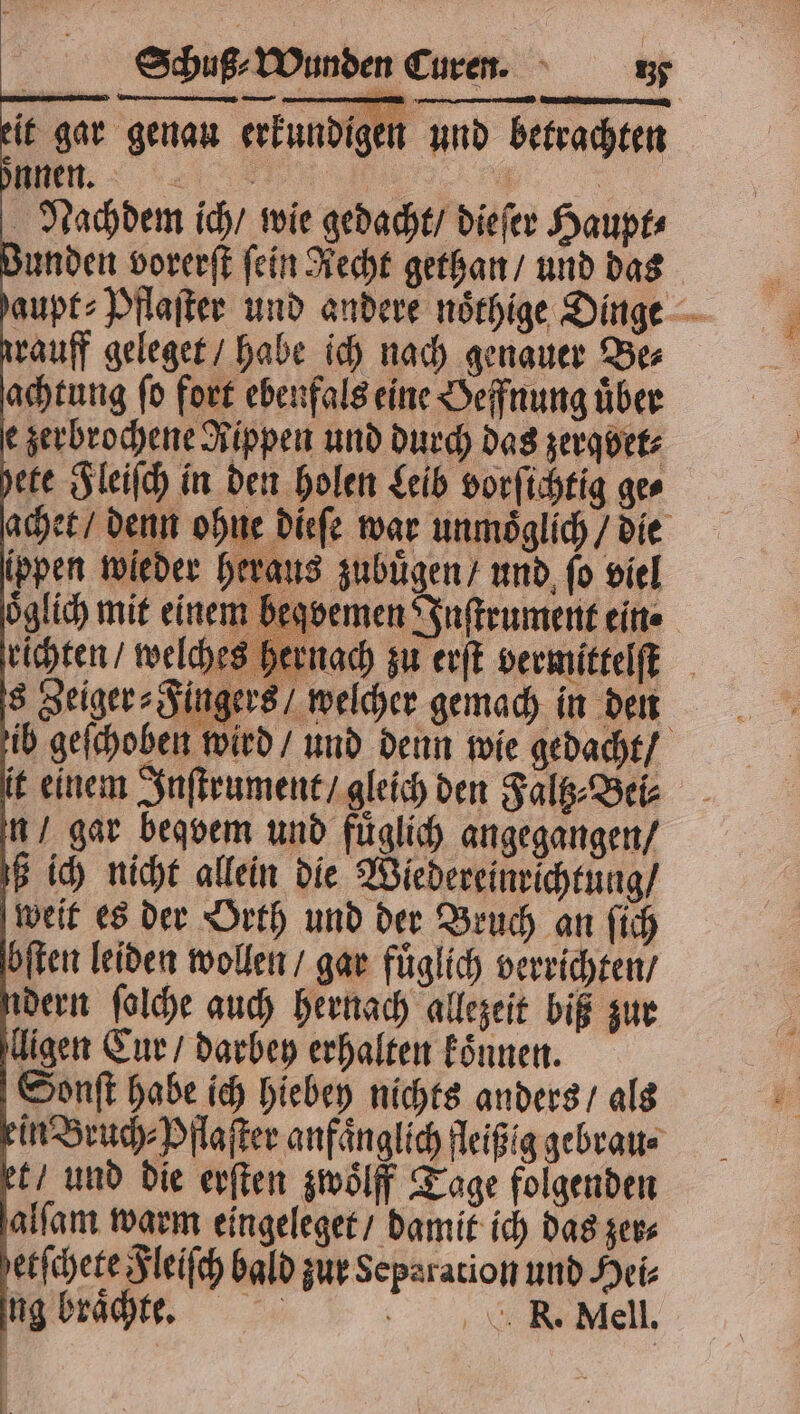 Schuß⸗Wunden Curen.
eit gar genau erkundigen und betrachten
oͤnnen.
Nachdem ich/ wie gedacht/ dieſer Haupt⸗
Wunden vorerſt ſein Recht gethan/ und das
haupt⸗Pflaſter und andere noͤthige Dinge
rauff geleget/ habe ich nach genauer Be⸗
achtung ſo fort ebenfals eine Oeffnung uͤber
e zerbrochene Rippen und durch das zerqvet⸗
hete Fleiſch in den holen Leib vorſichtig ge⸗
achet/ denn ohne dieſe war unmoͤglich/ die
ippen wieder heraus zubuͤgen/ und ſo viel
oͤglich mit einem beqvemen Inſtrument ein⸗
richten/ welches hernach zu erſt vermittelſt
s Zeiger⸗Fingers/ welcher gemach in den
ib geſchoben wird/ und denn wie gedacht/
it einem Inſtrument/ gleich den Faltz⸗Bei⸗
n/ gar beqvem und fuͤglich angegangen/
ß ich nicht allein die Wiedereinrichtung/
weit es der Orth und der Bruch an ſich
bſten leiden wollen/ gar fuͤglich verrichten/
ndern ſolche auch hernach allezeit biß zur
lligen Cur/ darbey erhalten koͤnnen.
Sonſt habe ich hiebey nichts anders/ als
ein Bruch⸗Pflaſter anfaͤnglich fleißig gebrau⸗
et/ und die erſten zwoͤlff Tage folgenden
alſam warm eingeleget/ damit ich das zer⸗
etſchete Fleiſch bald zur Separation und Hei⸗
ng braͤchte. R. Mell.